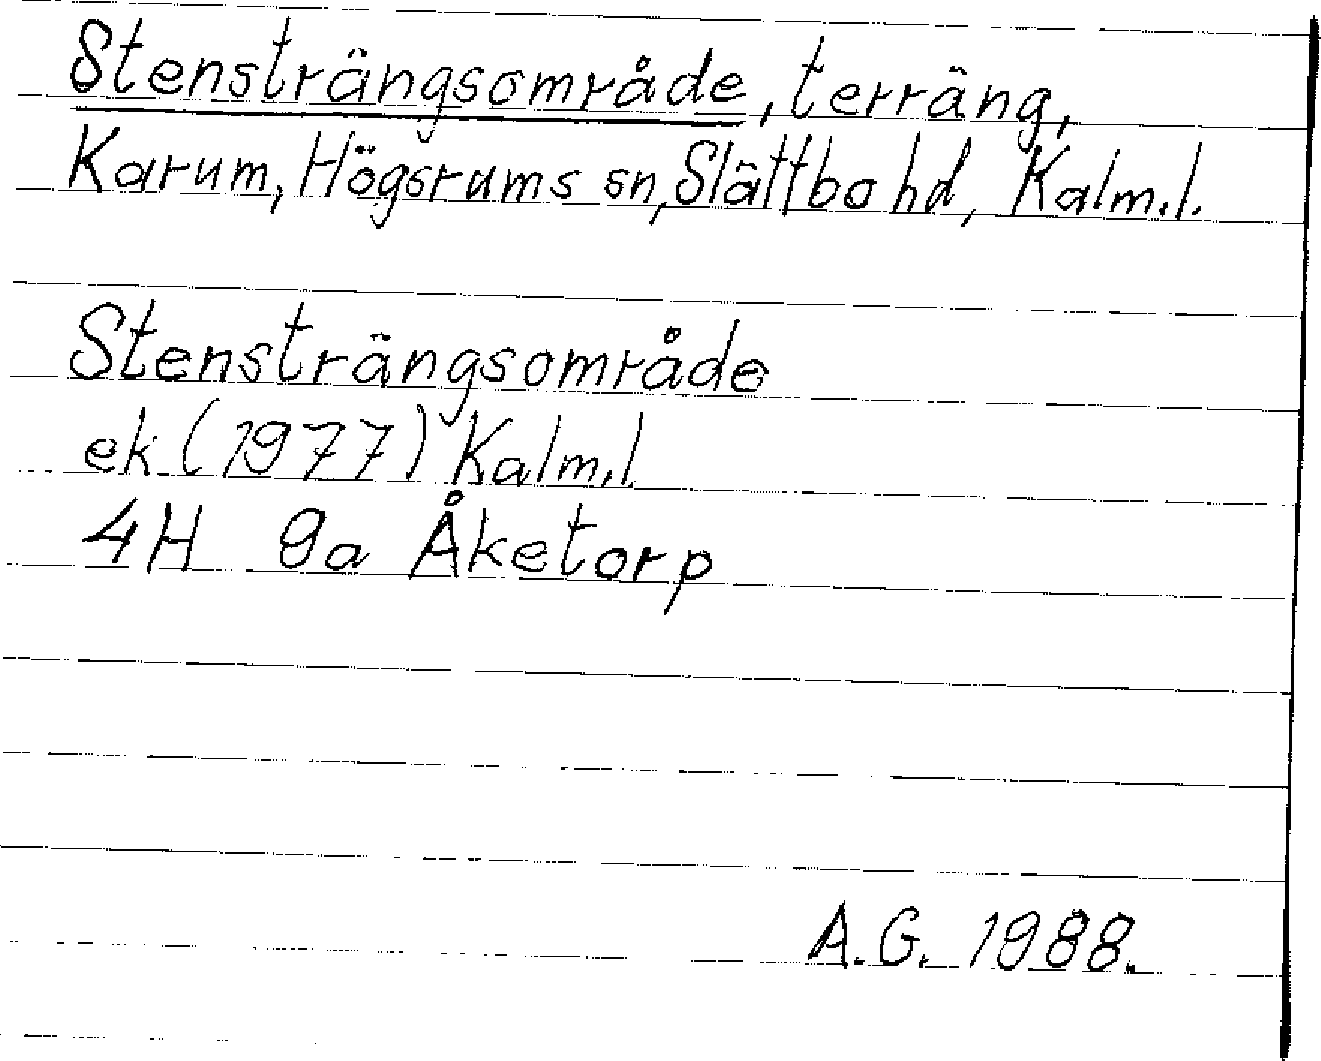 Stensträngsområde, terräng,
Karum, Högsrums sn, Slättbo hd, Kalm.l.
Stensträngsområde
ek (1977) Kalm.l.
4H 9a Åketorp
A.G. 1988.